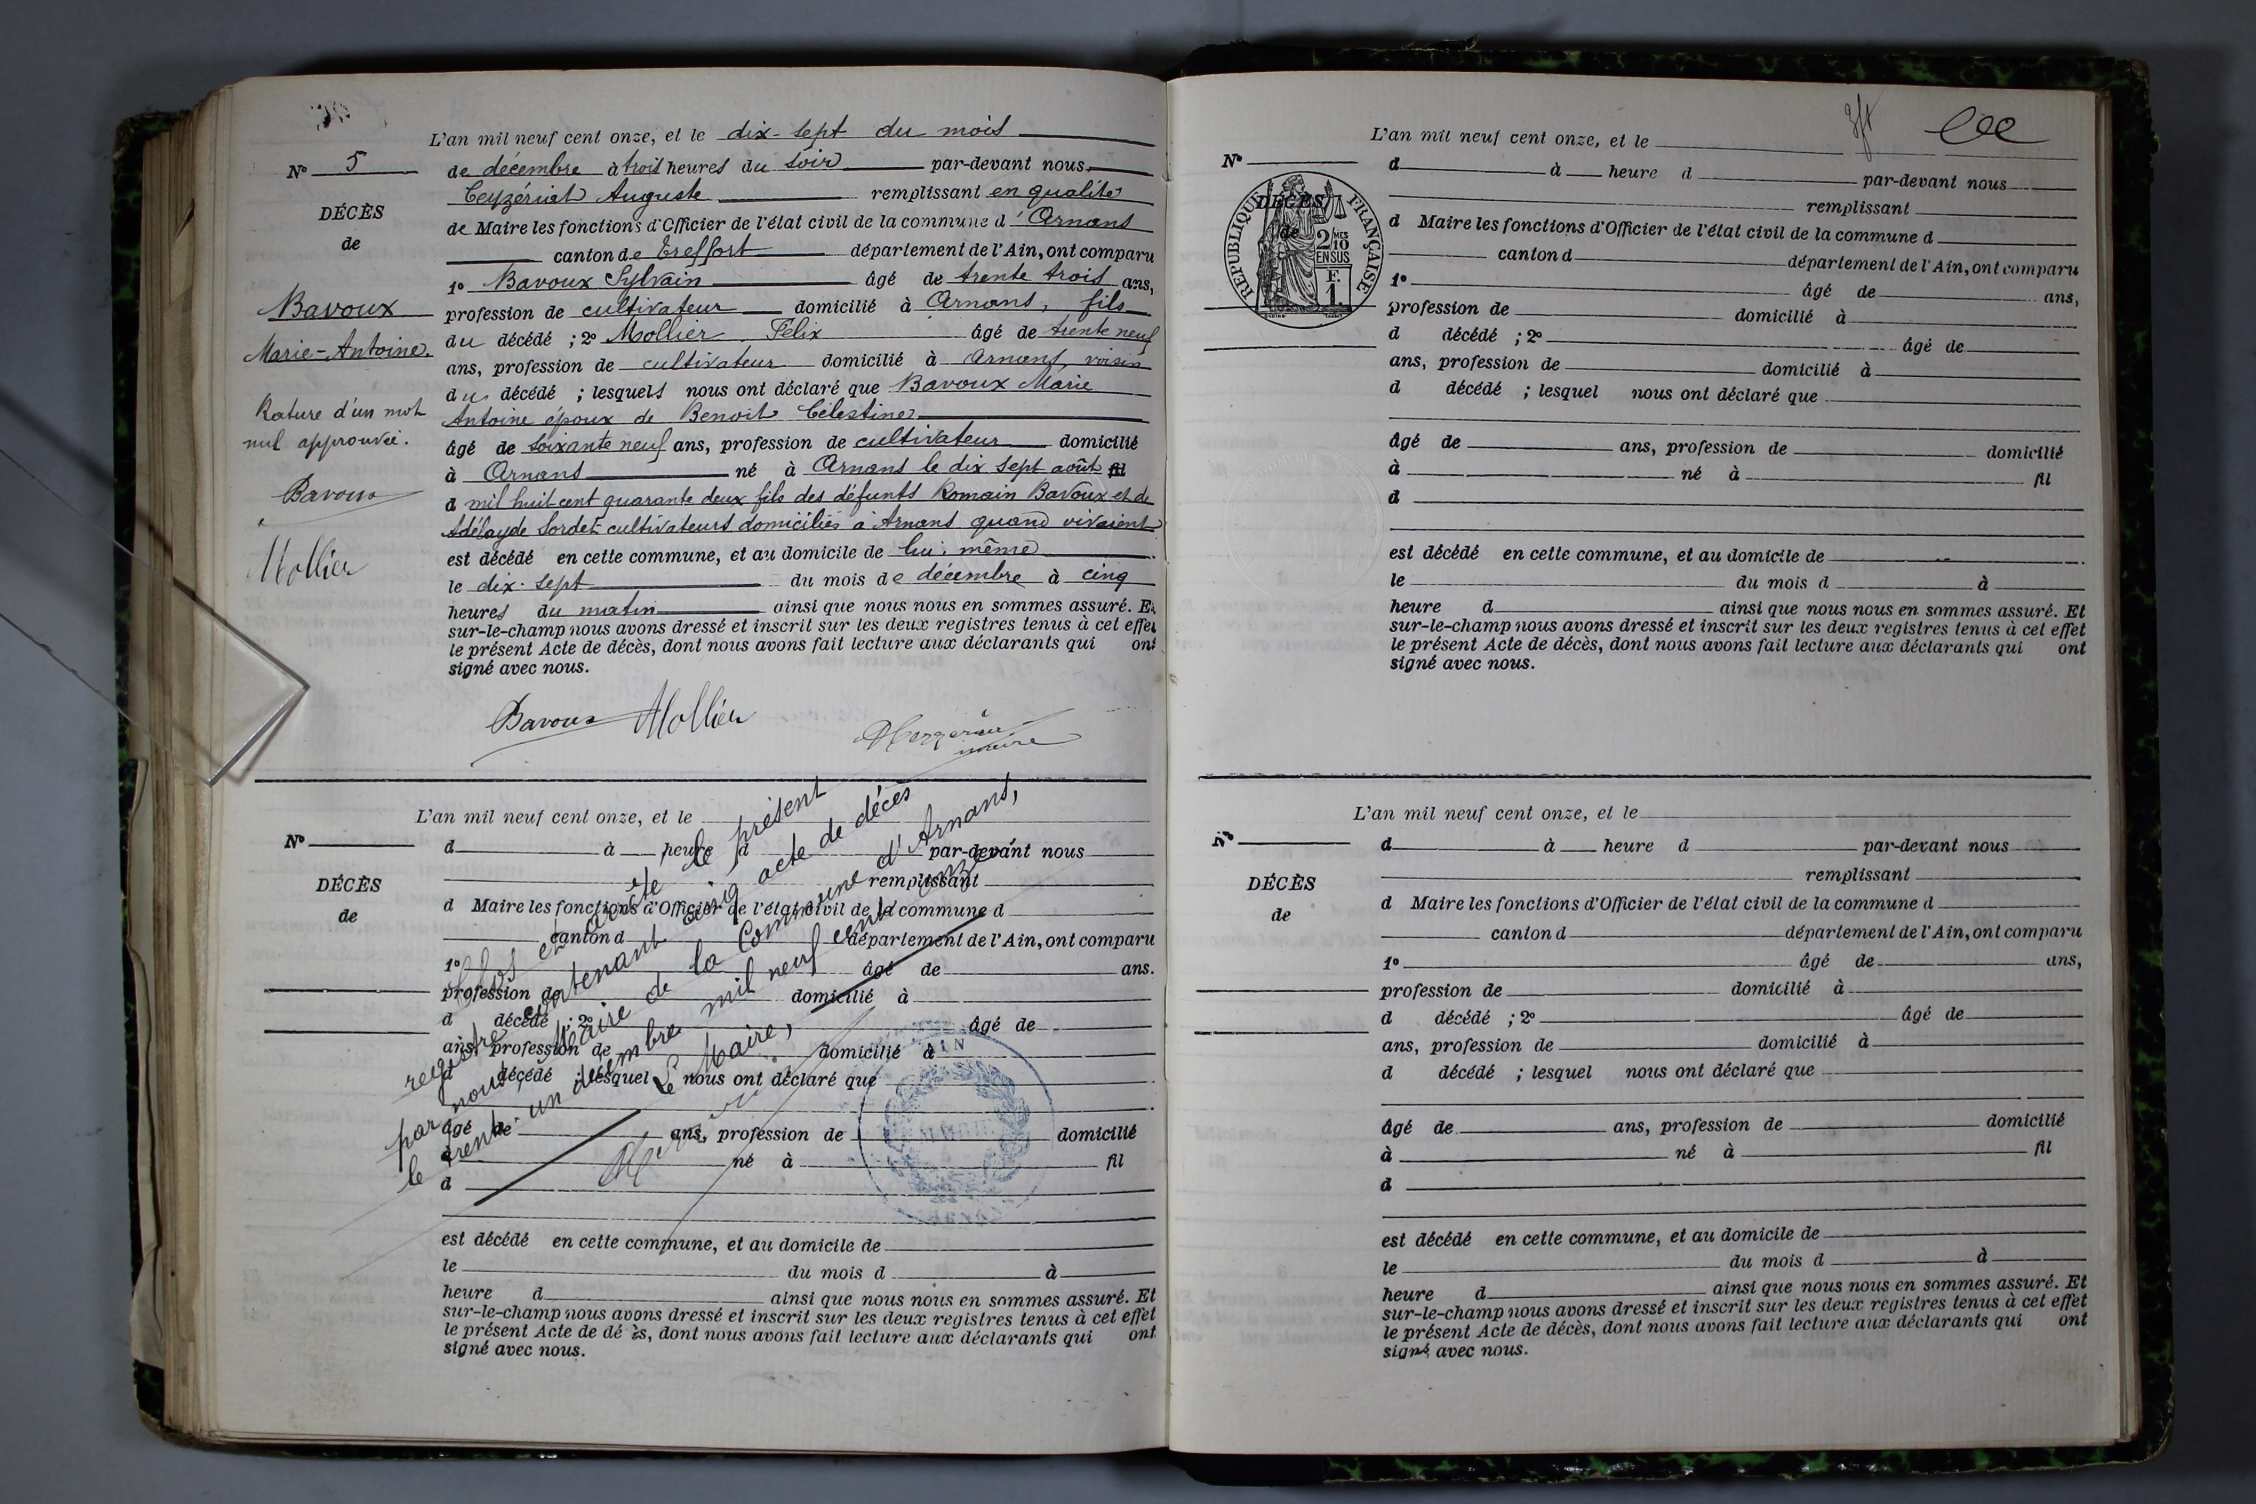 L'an mil neuf cent onze, et le dix-sept du mois
N° 5
de décembre à trois heures du soir par-devant nous
Ceyzériat Auguste remplissant en qualité
DÉCÈS
de Maire les fonctions d'Officier de l'état civil de la commune d'Arnans
de
canton de Treffort département de l'Ain, ont comparu
1° Bavoux Sylvain âgé de trente trois ans,
Bavoux
profession de cultivateur domicilié à Arnans, fils
Marie-Antoine.
du décédé ; 2° Mollier Félix âgé de trente neuf
ans, profession de cultivateur domicilié à Arnans, voisin
du décédé ; lesquels nous ont déclaré que Bavoux Marie
Rature d'un mot
Antoine époux de Benoit Célestine
nul approuvée.
âgé de soixante neuf ans, profession de cultivateur domicilié
à Arnans né à Arnans le dix sept août fil
Bavoux
d mil huit cent quarante deux fils des défunts Romain Bavoux et de
Adélayde Sordet cultivateurs domiciliés à Arnans quand vivaient
Mollier
est décédé en cette commune, et au domicile de lui même
le dix-sept du mois de décembre à cinq
heures du matin ainsi que nous nous en sommes assuré. Et
sur-le-champ nous avons dressé et inscrit sur les deux registres tenus à cet effet
le présent Acte de décès, dont nous avons fait lecture aux déclarants qui ont
signé avec nous.
Bavoux Mollier
maire
L'an mil neuf cent onze, et le
N°
d à heure d par-devant nous
remplissant
DÉCÈS
d Maire les fonctions d'Officier de l'état civil de la commune d
de
canton d département de l'Ain, ont comparu
1° âgé de ans.
profession de domicilié à
d décédé ; 2° âgé de
ans, profession de domicilié à
d décédé ; lesquel nous ont déclaré que
âgé de ans, profession de domicilié
à né à fil
d
est décédé en cette commune, et au domicile de
le du mois d à
heure d ainsi que nous nous en sommes assuré. Et
sur-le-champ nous avons dressé et inscrit sur les deux registres tenus à cet effet
le présent Acte de décès, dont nous avons fait lecture aux déclarants qui ont
signé avec nous.
Clos et arrêté le présent
registre contenant cinq acte de décès
par nous, Maire de la Commune d'Arnans,
le trente-un décembre mil neuf cent onze
Le Maire,
AIN
L'an mil neuf cent onze, et le
N°
d à heure d par-devant nous
remplissant
DÉCÈS
d Maire les fonctions d'Officier de l'état civil de la commune d
de
RÉPUBLIQUE FRANÇAISE
2/10
EN SUS
F.
1.
canton d département de l'Ain, ont comparu
1° âgé de ans,
profession de domicilié à
d décédé ; 2° âgé de
ans, profession de domicilié à
d décédé ; lesquel nous ont déclaré que
âgé de ans, profession de domicilié
à né à fil
d
est décédé en cette commune, et au domicile de
le du mois d à
heure d ainsi que nous nous en sommes assuré. Et
sur-le-champ nous avons dressé et inscrit sur les deux registres tenus à cet effet
le présent Acte de décès, dont nous avons fait lecture aux déclarants qui ont
signé avec nous.
L'an mil neuf cent onze, et le
N°
d à heure d par-devant nous
remplissant
DÉCÈS
d Maire les fonctions d'Officier de l'état civil de la commune d
de
canton d département de l'Ain, ont comparu
1° âgé de ans,
profession de domicilié à
d décédé ; 2° âgé de
ans, profession de domicilié à
d décédé ; lesquel nous ont déclaré que
âgé de ans, profession de domicilié
à né à fil
d
est décédé en cette commune, et au domicile de
le du mois d à
heure d ainsi que nous nous en sommes assuré. Et
sur-le-champ nous avons dressé et inscrit sur les deux registres tenus à cet effet
le présent Acte de décès, dont nous avons fait lecture aux déclarants qui ont
signé avec nous.